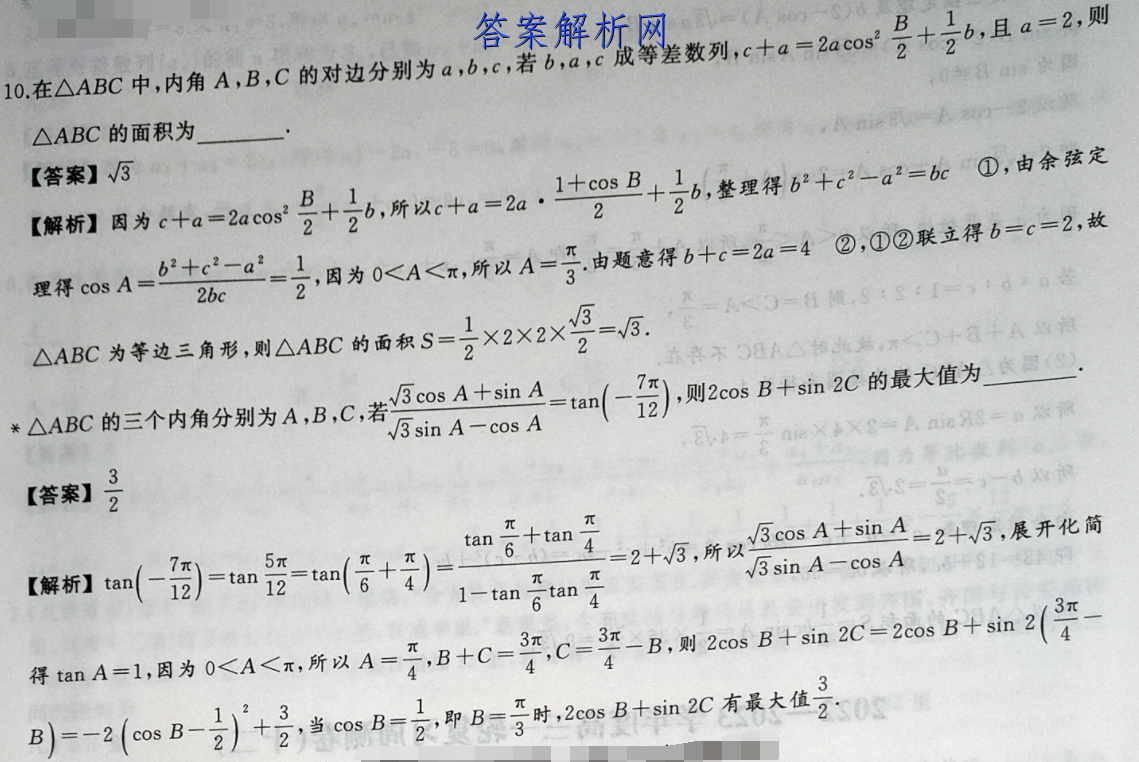 答案解析网
10.在△ABC 中,内角 A,B,C 的对边分别为 a,b,c,若 b,a,c 成等差数列,c+a=2acos² B/2+1/2b,且 a=2,则
△ABC 的面积为________.
【答案】√3
【解析】因为 c+a=2acos² B/2+1/2b,所以c+a=2a·(1+cos B)/2+1/2b,整理得 b²+c²-a²=bc ①,由余弦定
理得 cos A=(b²+c²-a²)/2bc=1/2,因为 0<A<π,所以 A=π/3.由题意得 b+c=2a=4 ②,①②联立得 b=c=2,故
△ABC 为等边三角形,则△ABC 的面积 S=1/2×2×2×√3/2=√3.
*△ABC 的三个内角分别为 A,B,C,若(√3cos A+sin A)/(√3sin A-cos A)=tan(-7π/12),则2cos B+sin 2C 的最大值为________.
【答案】3/2
【解析】tan(-7π/12)=tan 5π/12=tan(π/6+π/4)=(tan π/6+tan π/4)/(1-tan π/6 tan π/4)=2+√3,所以(√3cos A+sin A)/(√3sin A-cos A)=2+√3,展开化简
得 tan A=1,因为 0<A<π,所以 A=π/4,B+C=3π/4,C=3π/4-B,则 2cos B+sin 2C=2cos B+sin 2(3π/4-
B)=-2(cos B-1/2)²+3/2,当 cos B=1/2,即 B=π/3时,2cos B+sin 2C 有最大值3/2.